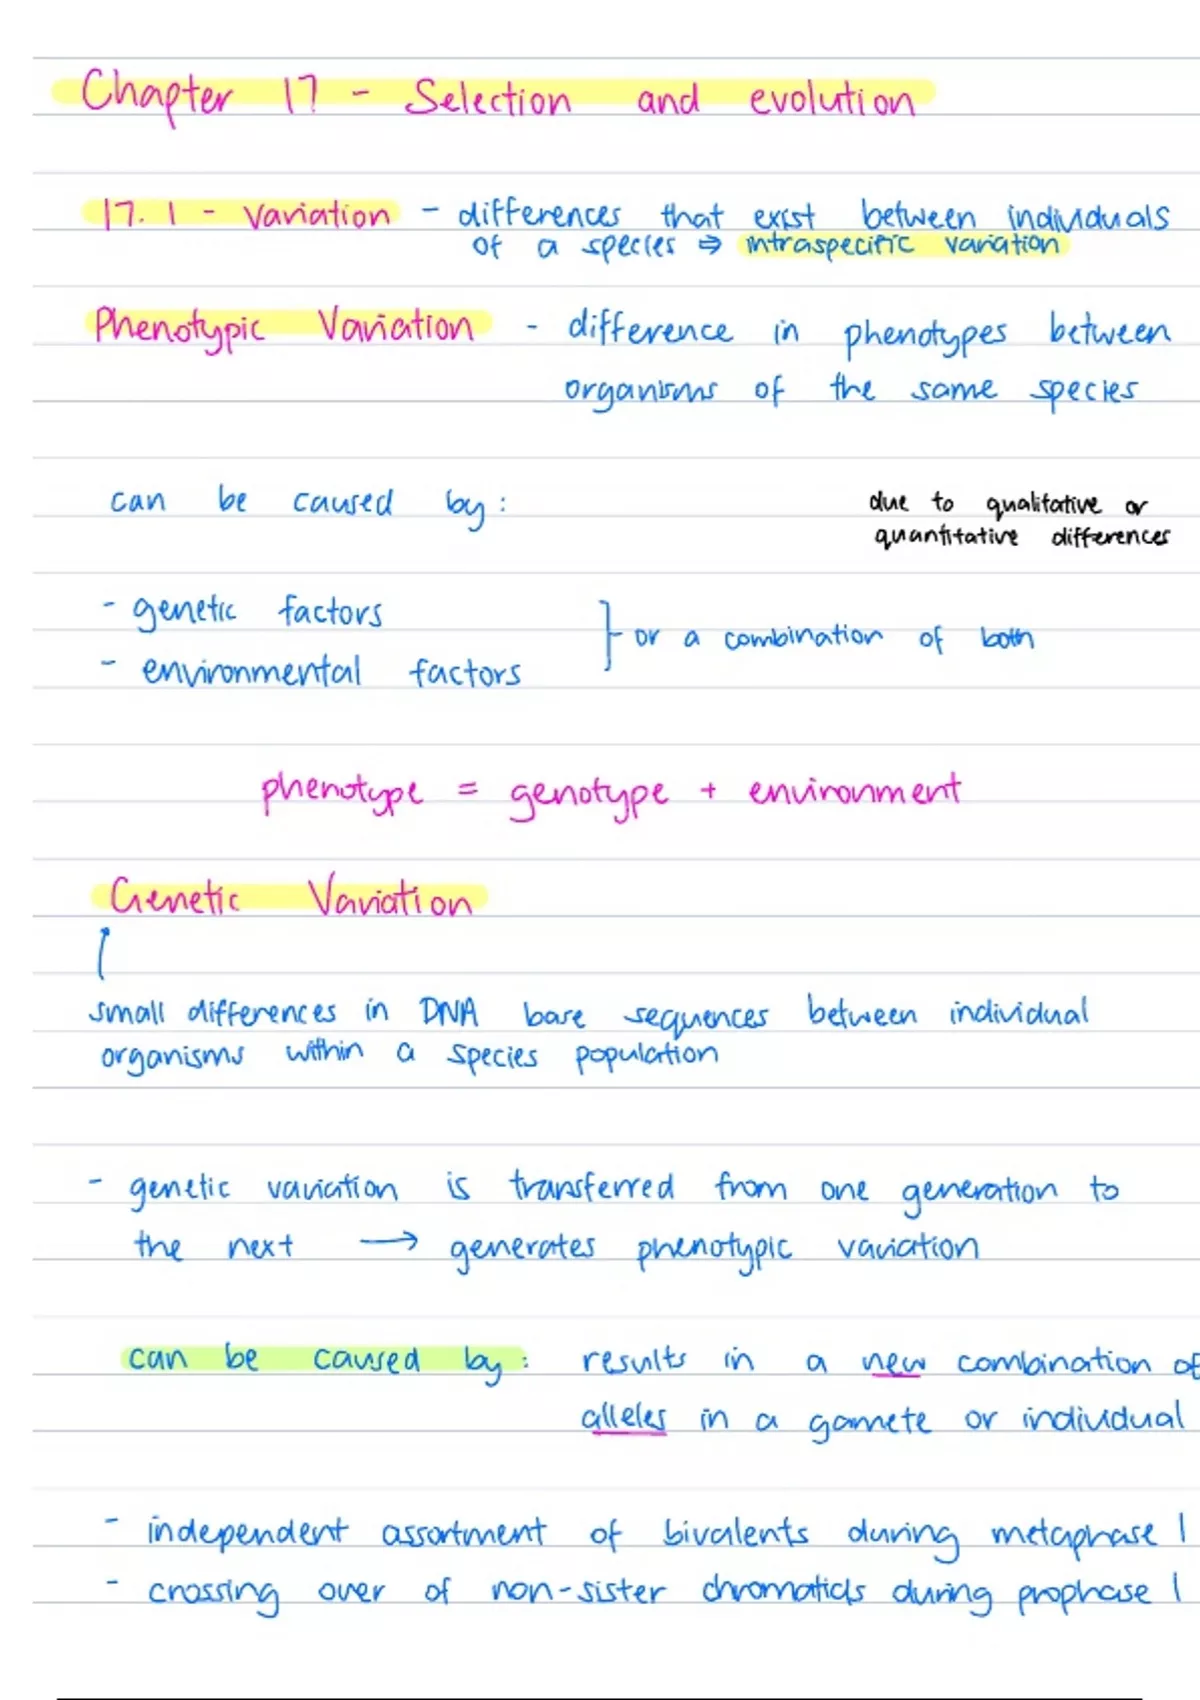 Chapter 17 - Selection and evolution
17.1 - Variation - differences that exist between individuals
of a species ⇒ intraspecific variation
Phenotypic Variation - difference in phenotypes between
organisms of the same species
can be caused by:
due to qualitative or
quantitative differences
- genetic factors
- environmental factors
} or a combination of both
phenotype = genotype + environment
Genetic Variation
small differences in DNA base sequences between individual
organisms within a species population
- genetic variation is transferred from one generation to
the next → generates phenotypic variation
can be caused by: results in a new combination of
alleles in a gamete or individual
- independent assortment of bivalents during metaphase 1
- crossing over of non-sister chromatids during prophase 1